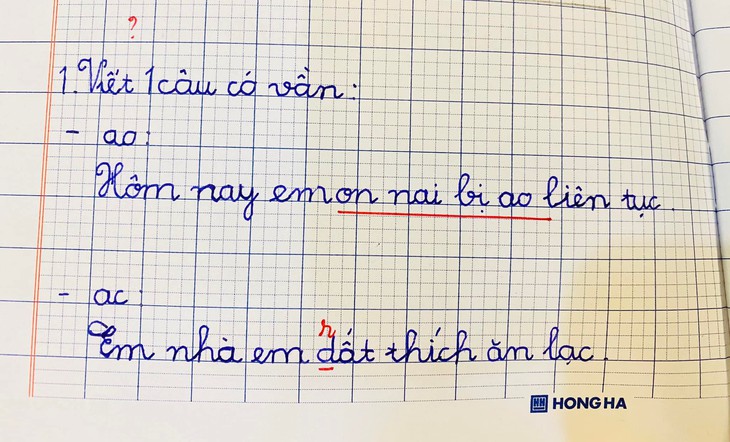 ?
1. Viết 1 câu có vần:
- ao:
Hôm nay em on nai bị ao liên tục.
- ac:
Em nhà em dất thích ăn lạc.
r
HONG HA